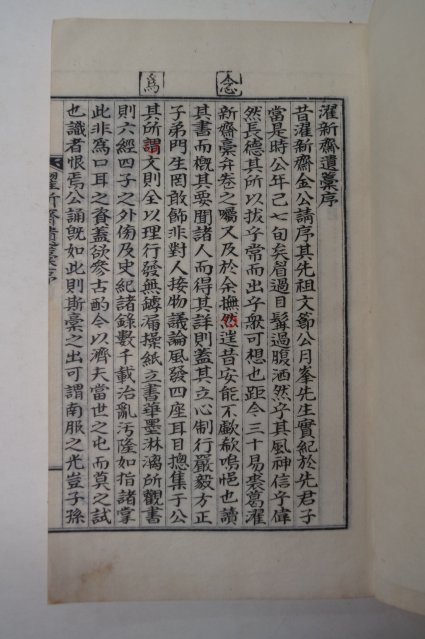 念
爲
濯新齋遺藁序
昔濯新齋金公請序其先祖文節公月峯先生實紀於先君子
當是時公年已七旬矣眉過目髯過腹洒然乎其風神信乎偉
然長德其所以拔乎常而出乎衆可想也距今三十易裘葛濯
新齋藁弁卷之囑又及於余撫然逞昔安能不歔欷嗚悒也讀
其書而槪其要聞諸人而得其詳則蓋其立心制行嚴毅方正
子弟門生罔敢飾非對人接物議論風發四座耳目摠集于公
其所謂文則全以理行發無罅漏操紙立書華墨淋漓所觀書
則六經四子之外傍及史紀諸錄數千載治亂汚隆如指諸掌
此非爲口耳之資蓋欲參古酌今以濟夫當世之屯而莫之試
也識者恨焉公誦旣如此則斯藁之出可謂南服之光豈子孫
濯新齋遺藁序